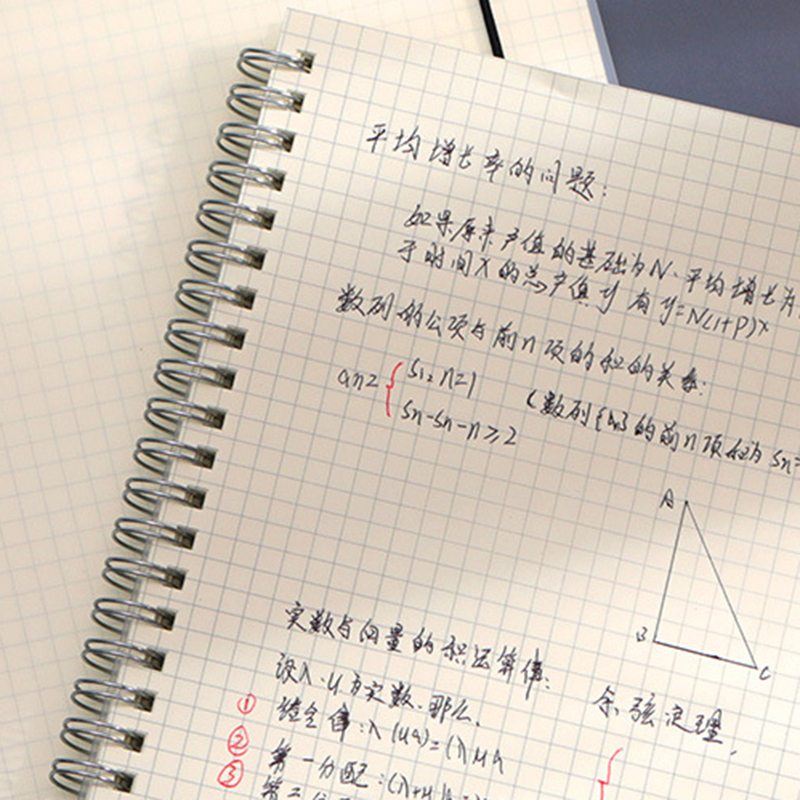 平均增长率的问题:
如果原来产值的基础为N.平均增长为
于时间X的总产值y 有 y=N(1+P)x
数列的公项与前n项的和的关系:
an= { S1, n=1
Sn-Sn-n≥2
(数列{an}的前n项和为 Sn=
A
B
C
实数与向量的积运算律:
设λ.μ为实数.那么.
① 结合律:λ(μa)=(λμa
② 第一分配:(λ+μ
③ 第二分
余弦定理,